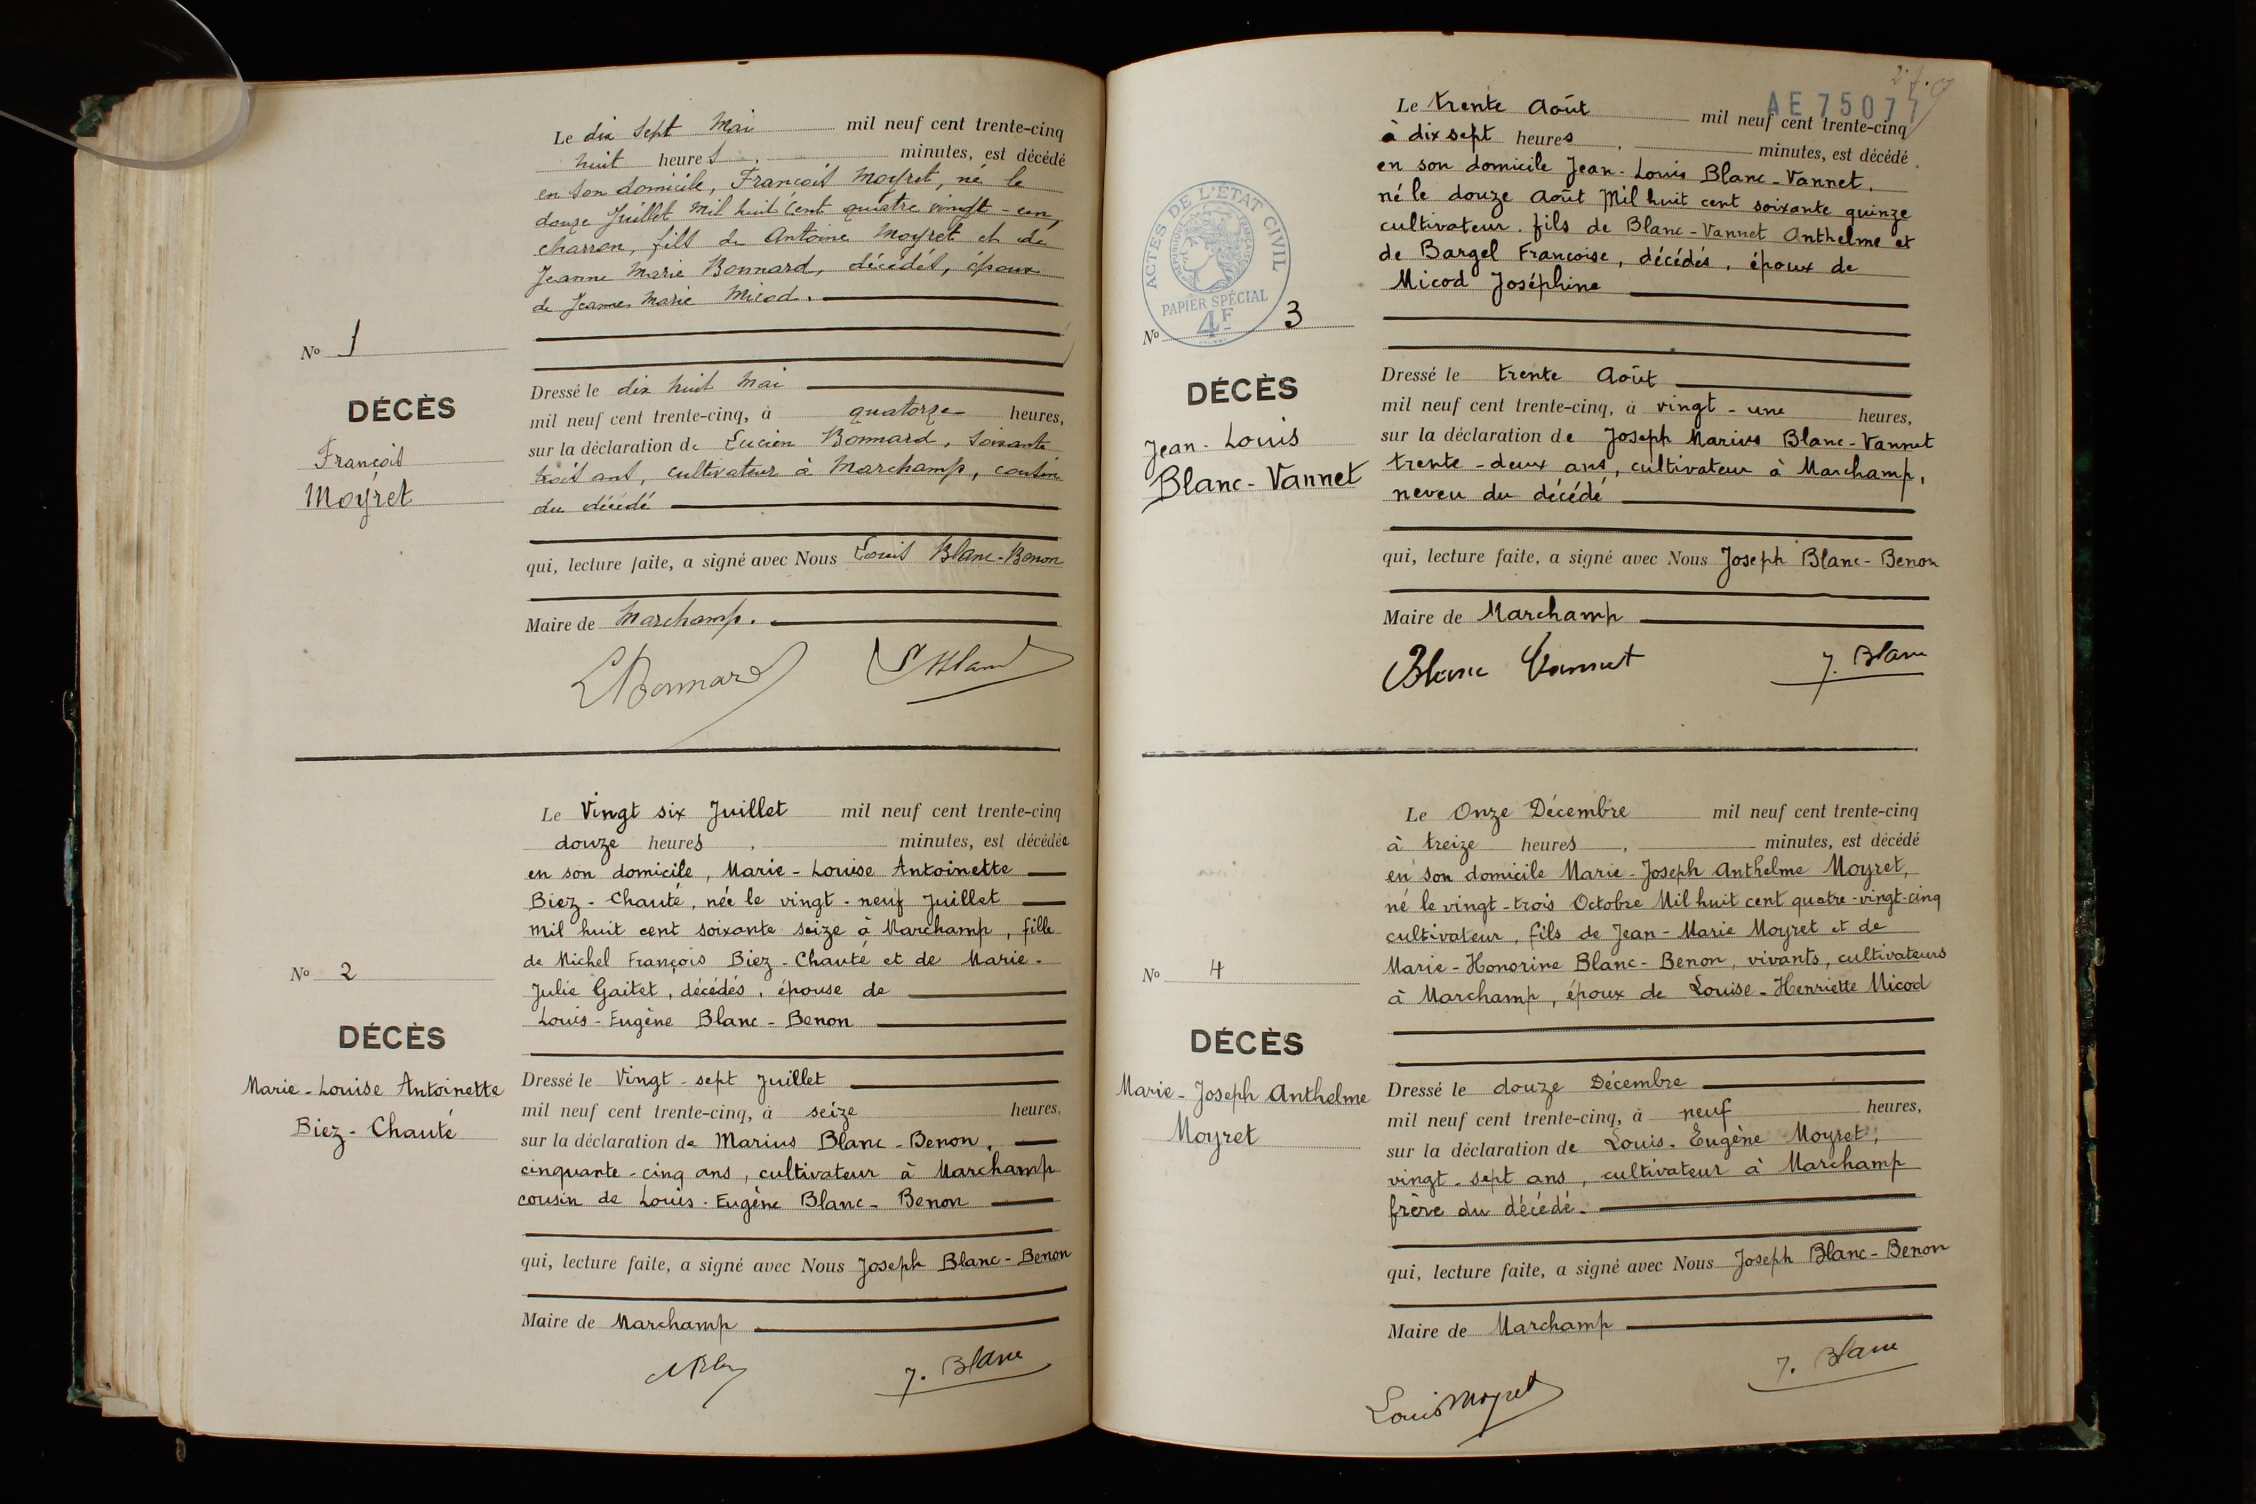 Le dix sept Mai mil neuf cent trente-cinq
huit heures, minutes, est décédé
en son domicile, François Moyret, né le
douze Juillet Mil huit cent quatre vingt-un,
charron, fils de Antoine Moyret et de
Jeanne Marie Bonnard, décédés, époux
de Jeanne Marie Micod.
No 1
DÉCÈS
François
Moyret
Dressé le dix huit Mai
mil neuf cent trente-cinq, à quatorze heures,
sur la déclaration de Lucien Bonnard, soixante
trois ans, cultivateur à Marchamp, cousin
du décédé
qui, lecture faite, a signé avec Nous Louis Blanc-Benon
Maire de Marchamp.
LBonnard
L Blanc
Le Vingt six Juillet mil neuf cent trente-cinq
douze heures, minutes, est décédée
en son domicile, Marie-Louise Antoinette
Biez-Chauté, née le vingt-neuf Juillet
Mil huit cent soixante seize à Marchamp, fille
de Michel François Biez-Chauté et de Marie-
Julie Gaitet, décédés, épouse de
Louis-Eugène Blanc-Benon
No 2
DÉCÈS
Marie-Louise Antoinette
Biez-Chauté
Dressé le Vingt-sept Juillet
mil neuf cent trente-cinq, à seize heures,
sur la déclaration de Marius Blanc-Benon,
cinquante-cinq ans, cultivateur à Marchamp
cousin de Louis-Eugène Blanc-Benon
qui, lecture faite, a signé avec Nous Joseph Blanc-Benon
Maire de Marchamp
J. Blanc
AE 75077
Le trente Août mil neuf cent trente-cinq
à dix sept heures, minutes, est décédé
en son domicile Jean-Louis Blanc-Vannet,
né le douze Août Mil huit cent soixante quinze
cultivateur. fils de Blanc-Vannet Anthelme et
de Bargel Françoise, décédés, époux de
Micod Joséphine
ACTES DE L'ÉTAT CIVIL
RÉPUBLIQUE FRANÇAISE
PAPIER SPÉCIAL
4F
No 3
DÉCÈS
Jean-Louis
Blanc-Vannet
Dressé le trente Août
mil neuf cent trente-cinq, à vingt-une heures,
sur la déclaration de Joseph Marius Blanc-Vannet
trente-deux ans, cultivateur à Marchamp,
neveu du décédé
qui, lecture faite, a signé avec Nous Joseph Blanc-Benon
Maire de Marchamp
Blanc Vannet
J. Blanc
Le Onze Décembre mil neuf cent trente-cinq
à treize heures, minutes, est décédé
en son domicile Marie-Joseph Anthelme Moyret,
né le vingt-trois Octobre Mil huit cent quatre-vingt-cinq
cultivateur, fils de Jean-Marie Moyret et de
Marie-Honorine Blanc-Benon, vivants, cultivateurs
à Marchamp, époux de Louise-Henriette Micod
No 4
DÉCÈS
Marie-Joseph Anthelme
Moyret
Dressé le douze Décembre
mil neuf cent trente-cinq, à neuf heures,
sur la déclaration de Louis-Eugène Moyret,
vingt-sept ans, cultivateur à Marchamp
frère du décédé.
qui, lecture faite, a signé avec Nous Joseph Blanc-Benon
Maire de Marchamp
J. Blanc
Louis Moyret